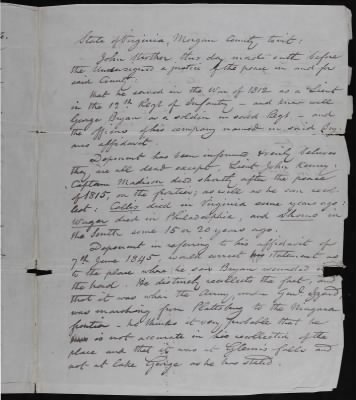 State of Virginia, Morgan County to wit:
John Strother this day made oath before
the undersigned a justice of the peace in and for
said County:
that he served in the War of 1812 as a Lieut
in the 12th Regt of Infantry – and knew well
George Bryan as a soldier in said Regt – and
the officers of his company named in said Bry-
ans affidavit.
Deponent has been informed & verily believes
they are all dead except Lieut John Kenney.
Captain Madison died shortly after the peace
of 1815, on the frontier, as well as he can recol-
lect: Collis died in Virginia some years ago:
Wager died in Philadelphia, and in
the South some 15 or 20 years ago.
Deponent in referring to his affidavit of
7th June 1845, would correct his statement as
to the place where he saw Bryan wounded in
the hand. He distinctly recollects the fact, and
that it was when the Army, under Genl Izard,
was marching from Plattsburg to the Niagara
frontier – he thinks it very probable that he
is not accurate in his recollection of the
place and that it was at Glenns falls and
not at Lake George as he has stated.